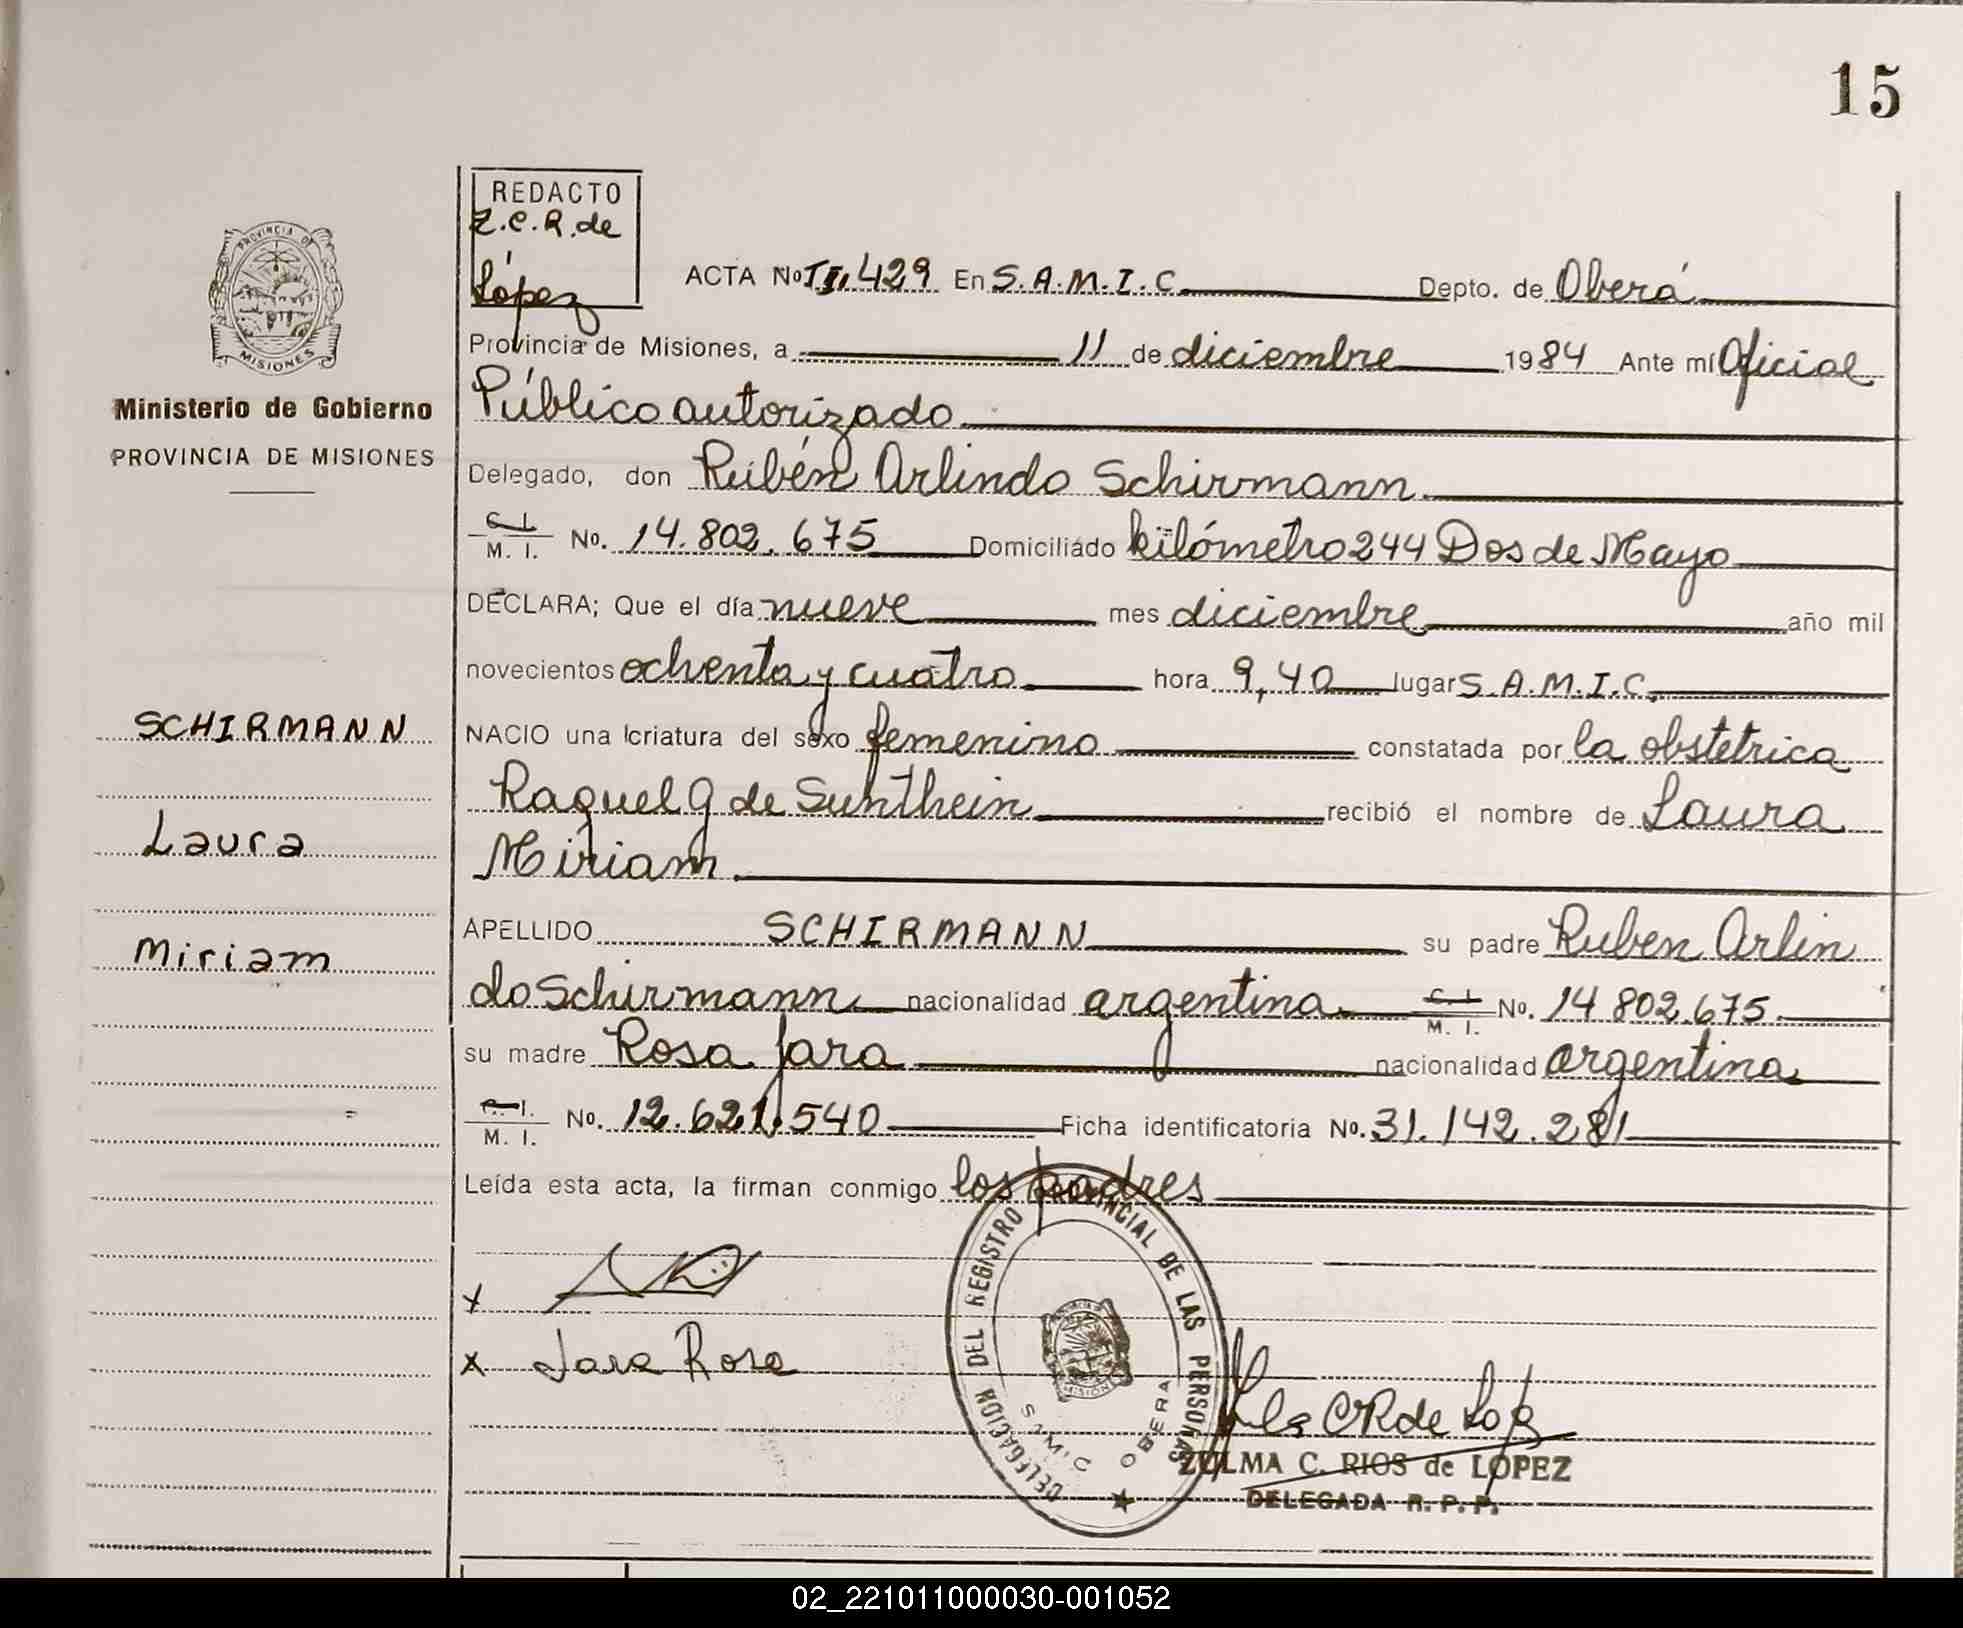 15
REDACTO
Z.C.R. de
López
PROVINCIA DE
MISIONES
Ministerio de Gobierno
PROVINCIA DE MISIONES
SCHIRMANN
Laura
Miriam
ACTA No TI, 429 En S.A.M.I.C. Depto. de Oberá
Provincia de Misiones, a 11 de diciembre 1984 Ante mí Oficial
Público autorizado
Delegado, don Rubén Arlindo Schirmann
C. I.
M. I. No. 14.802.675 Domiciliado kilómetro 244 Dos de Mayo
DECLARA; Que el día nueve mes diciembre año mil
novecientos ochenta y cuatro hora 9,40 lugar S.A.M.I.C.
NACIO una criatura del sexo femenino constatada por la obstetrica
Raquel G de Sunthein recibió el nombre de Laura
Miriam
APELLIDO SCHIRMANN su padre Ruben Arlin
do Schirmann nacionalidad argentina C. I.
M. I. No. 14 802.675
su madre Rosa Jara nacionalidad argentina
C. I.
M. I. No. 12.621.540 Ficha identificatoria No. 31.142.281
Leída esta acta, la firman conmigo los padres
x
x Jara Rosa
DELEGACION DEL REGISTRO PROVINCIAL DE LAS PERSONAS
S.A.M.I.C. OBERA
MISIONES
ZULMA C. RIOS de LOPEZ
DELEGADA R. P. P.
02_221011000030-001052